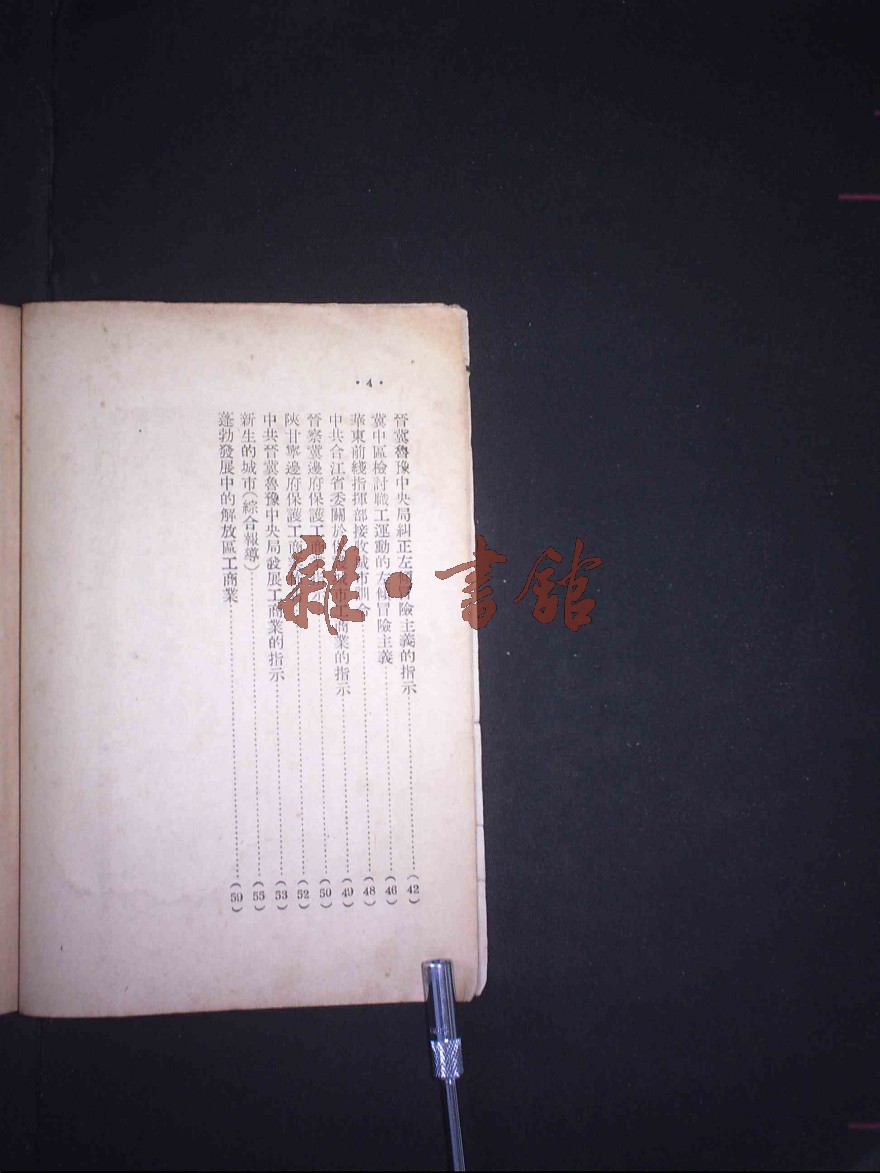 ·4·
晉冀魯豫中央局糾正左 冒險主義的指示……(42)
冀中區檢討職工運動的左傾冒險主義……(46)
華東前綫指揮部接收城市訓令……(48)
中共合江省委關於保 商業的指示……(49)
晉察冀邊府保護工商 示……(50)
陝甘寧邊府保護工商……(52)
中共晉冀魯豫中央局發展工商業的指示……(53)
新生的城市(綜合報導)……(55)
蓬勃發展中的解放區工商業……(59)
雜·書館